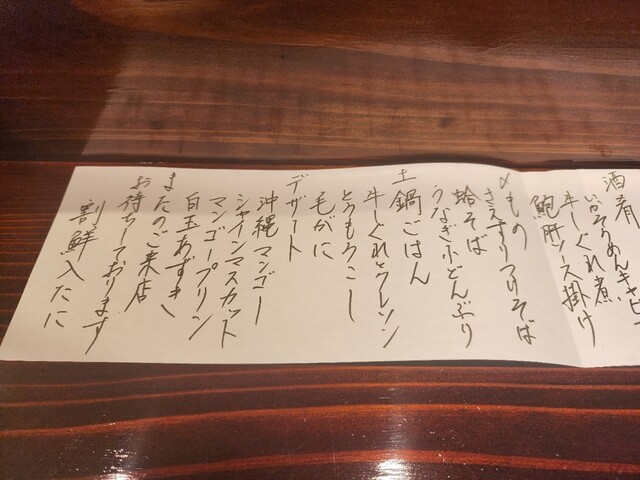 酒肴
いかそうめんキャビ
牛しぐれ煮
鮑肝ソース掛け
〆もの
さえずりつけそば
蛤そば
うなぎ小どんぶり
土鍋ごはん
牛しぐれとクレソン
とうもろこし
毛がに
デザート
沖縄マンゴー
シャインマスカット
マンゴープリン
白玉あずき
またのご来店
お待ちしております
割鮮入たに